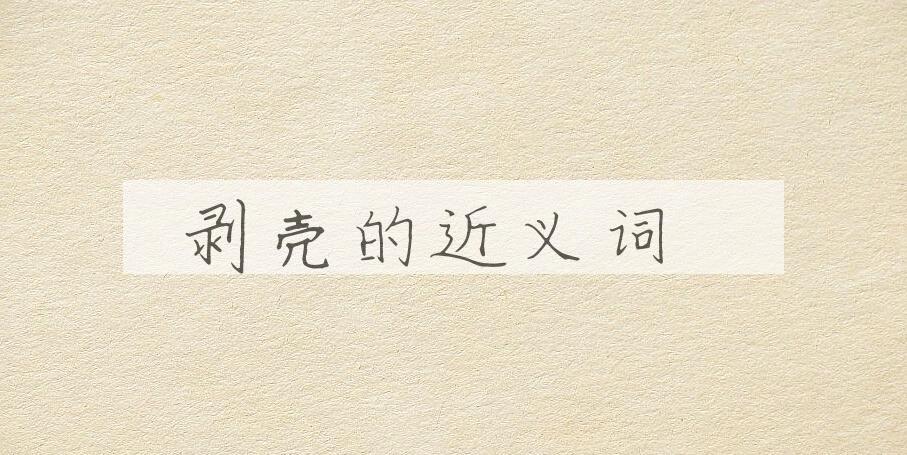 剥壳的近义词